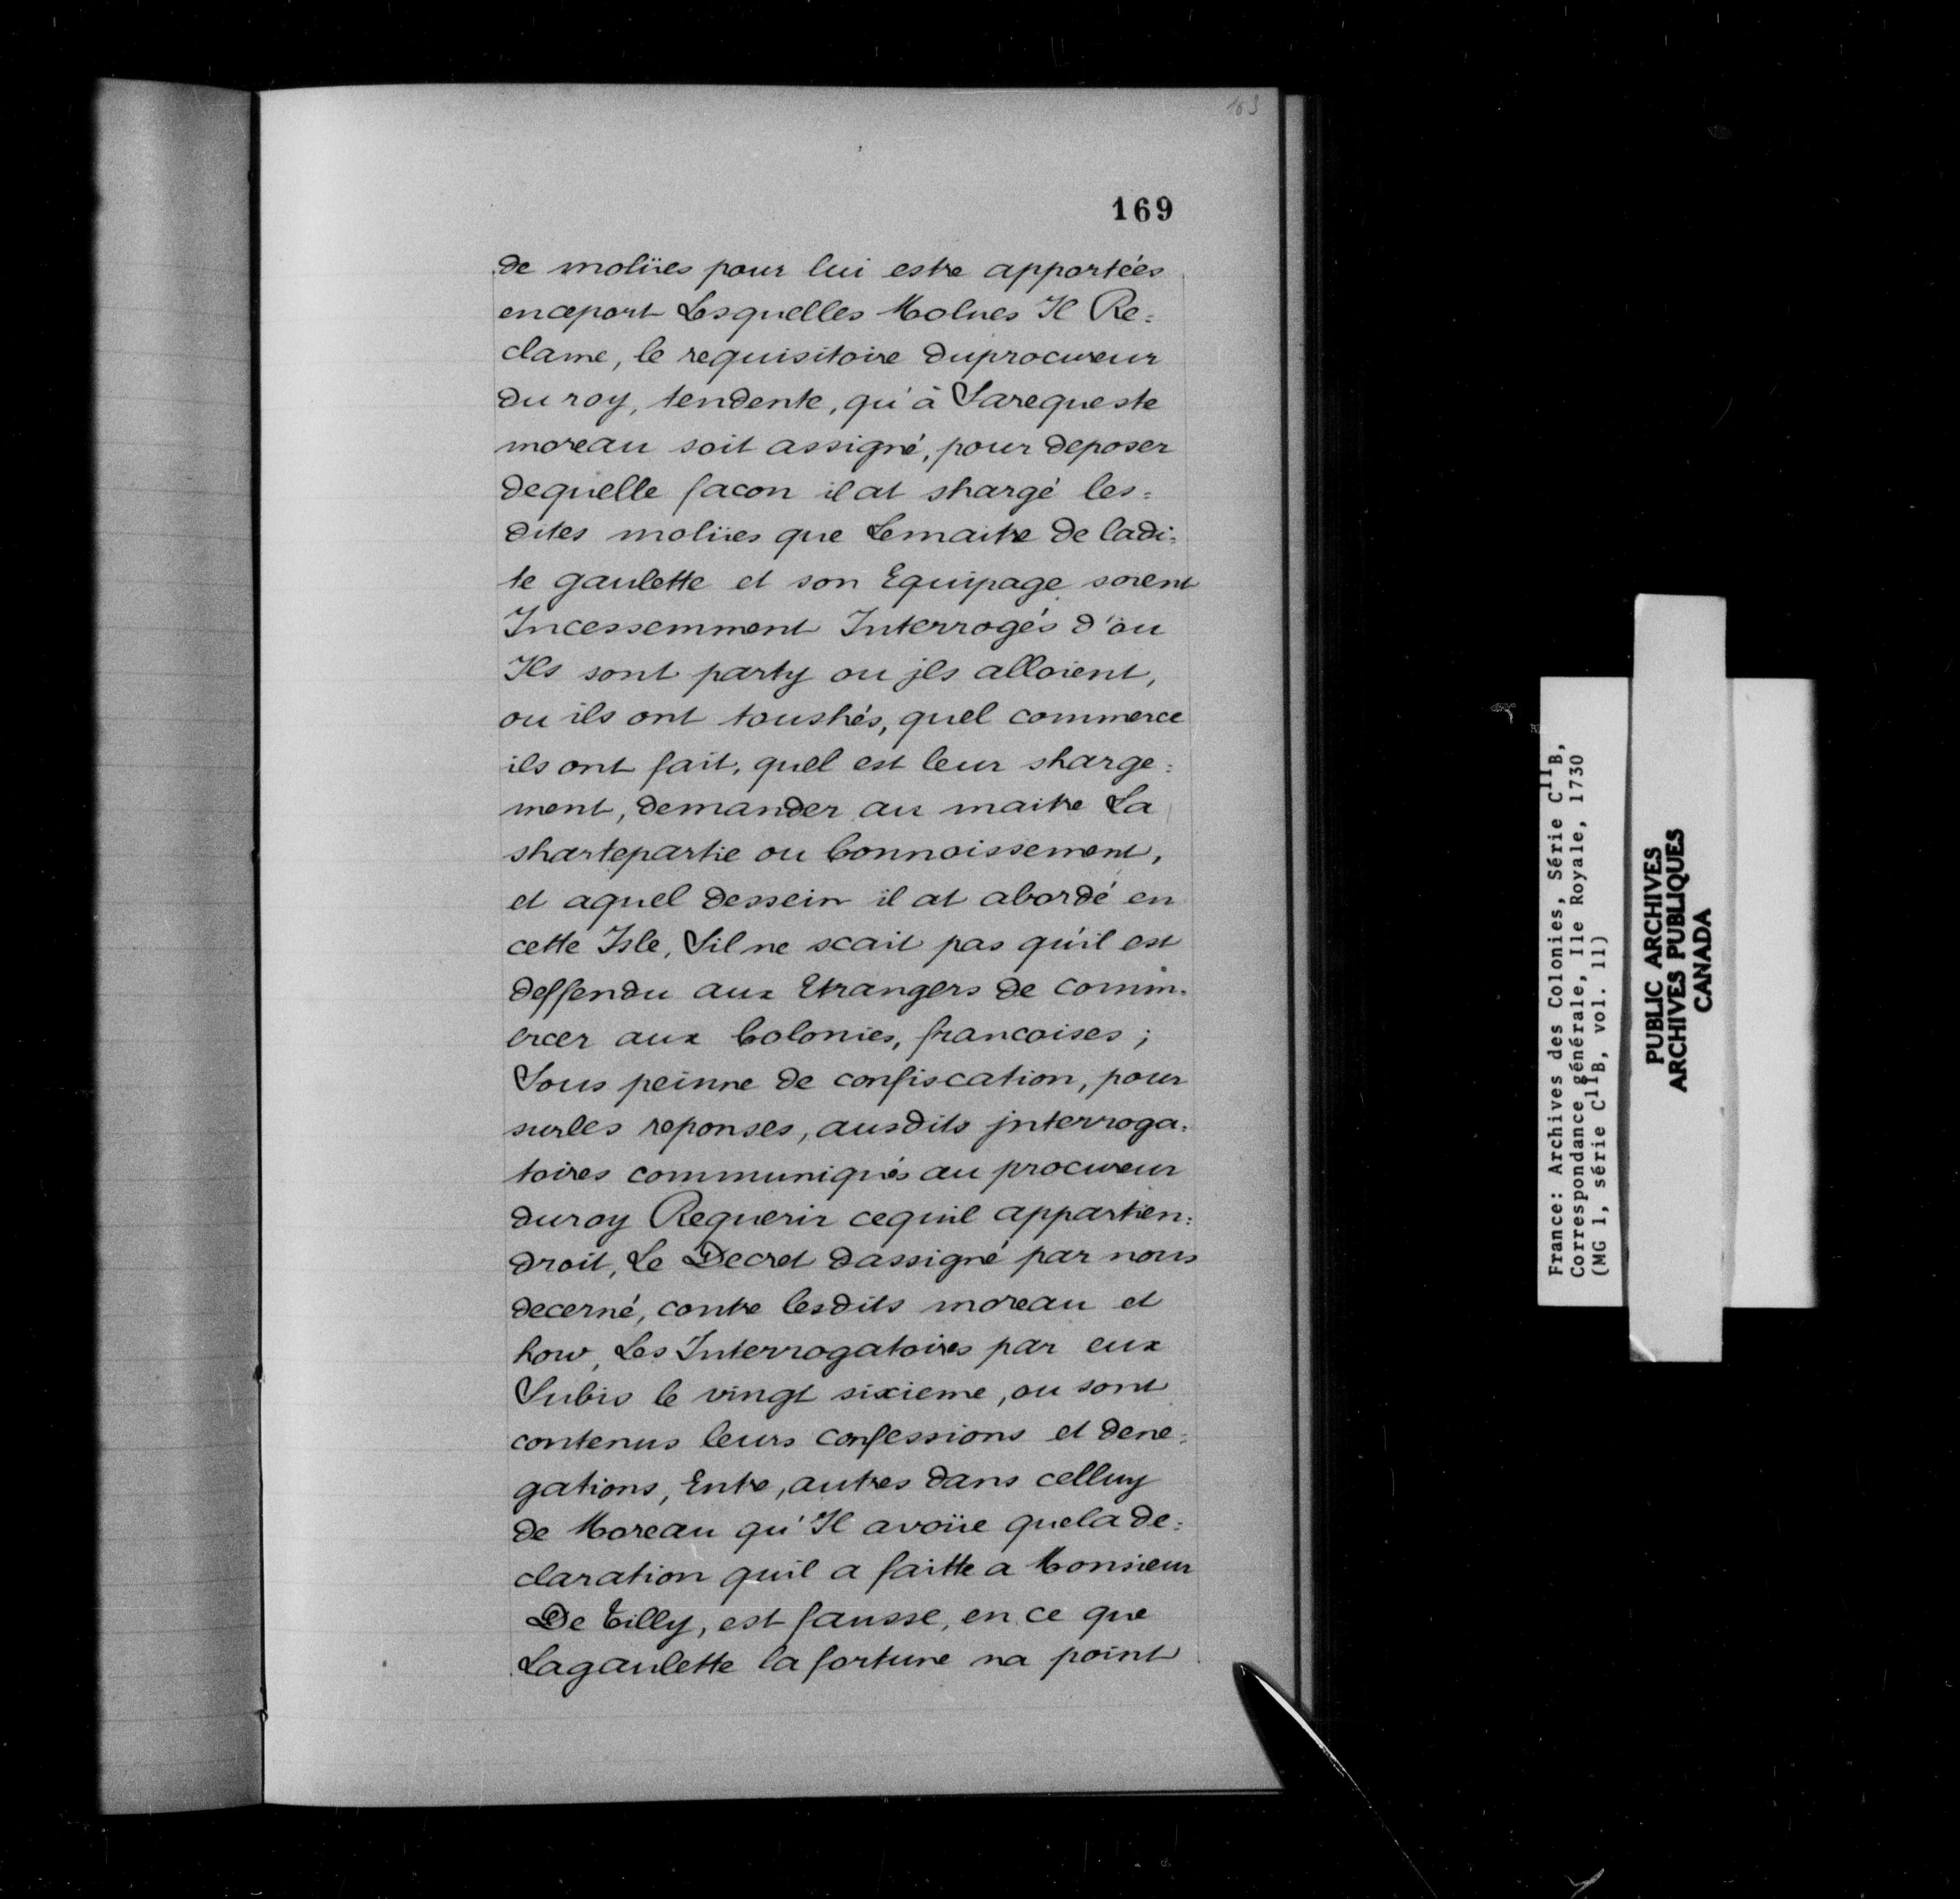 169
169
de molües pour lui estre apportées
enceport Lesquelles Molues Il Re=
clame, le requisitoire duprocureur
du roy, tendente, qu'à Sarequeste
moreau soit assigné, pour deposer
dequelle facon il at shargé les=
dites molües que Lemaitre de ladi=
te gaulette et son Equipage soient
Incessemment Interrogés d'ou
Ils sont party ou jls alloient,
ou ils ont toushés, quel commerce
ils ont fait, quel est leur sharge=
ment, demander au maitre La
shartepartie ou Connoissement,
et aquel dessein il at abordé en
cette Isle, Sil ne scait pas qu'il est
deffendu aux Etrangers de comm-
ercer aux Colonies, francoises ;
Sous peinne de confiscation, pour
surles reponses, ausdits jnterroga=
toires communiqués au procureur
duroy Requerir cequil appartien=
droit, Le Decret dassigné par nous
decerné, contre lesdits moreau et
how, Les Interrogatoires par eux
Subis le vingt sixieme, ou sont
contenus leurs confessions et dene=
gations, Entre, autres dans celluy
de Moreau qu'Il avoüe quela de=
claration quil a faitte a Monsieur
De Tilly, est fausse, en ce que
Lagaulette la fortune na point
France: Archives des Colonies, Série C11B,
Correspondance générale, Ile Royale, 1730
(MG 1, série C11B, vol. 11)
PUBLIC ARCHIVES
ARCHIVES PUBLIQUES
CANADA